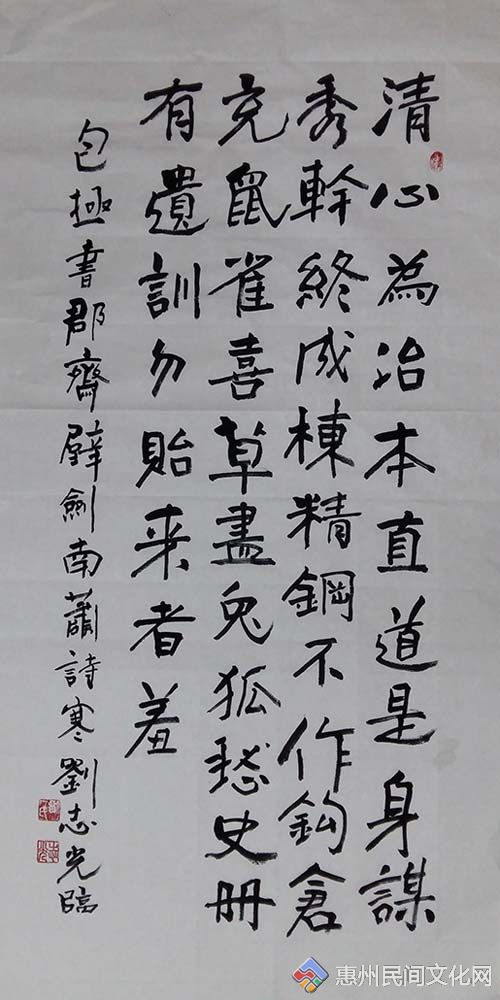 清心為治本直道是身謀
秀幹終成棟精鋼不作鈎倉
充鼠雀喜草盡兔狐愁史册
有遺訓勿貽来者羞
包拯書郡齋壁劍南蕭詩寒劉志光臨
惠州民间文化网